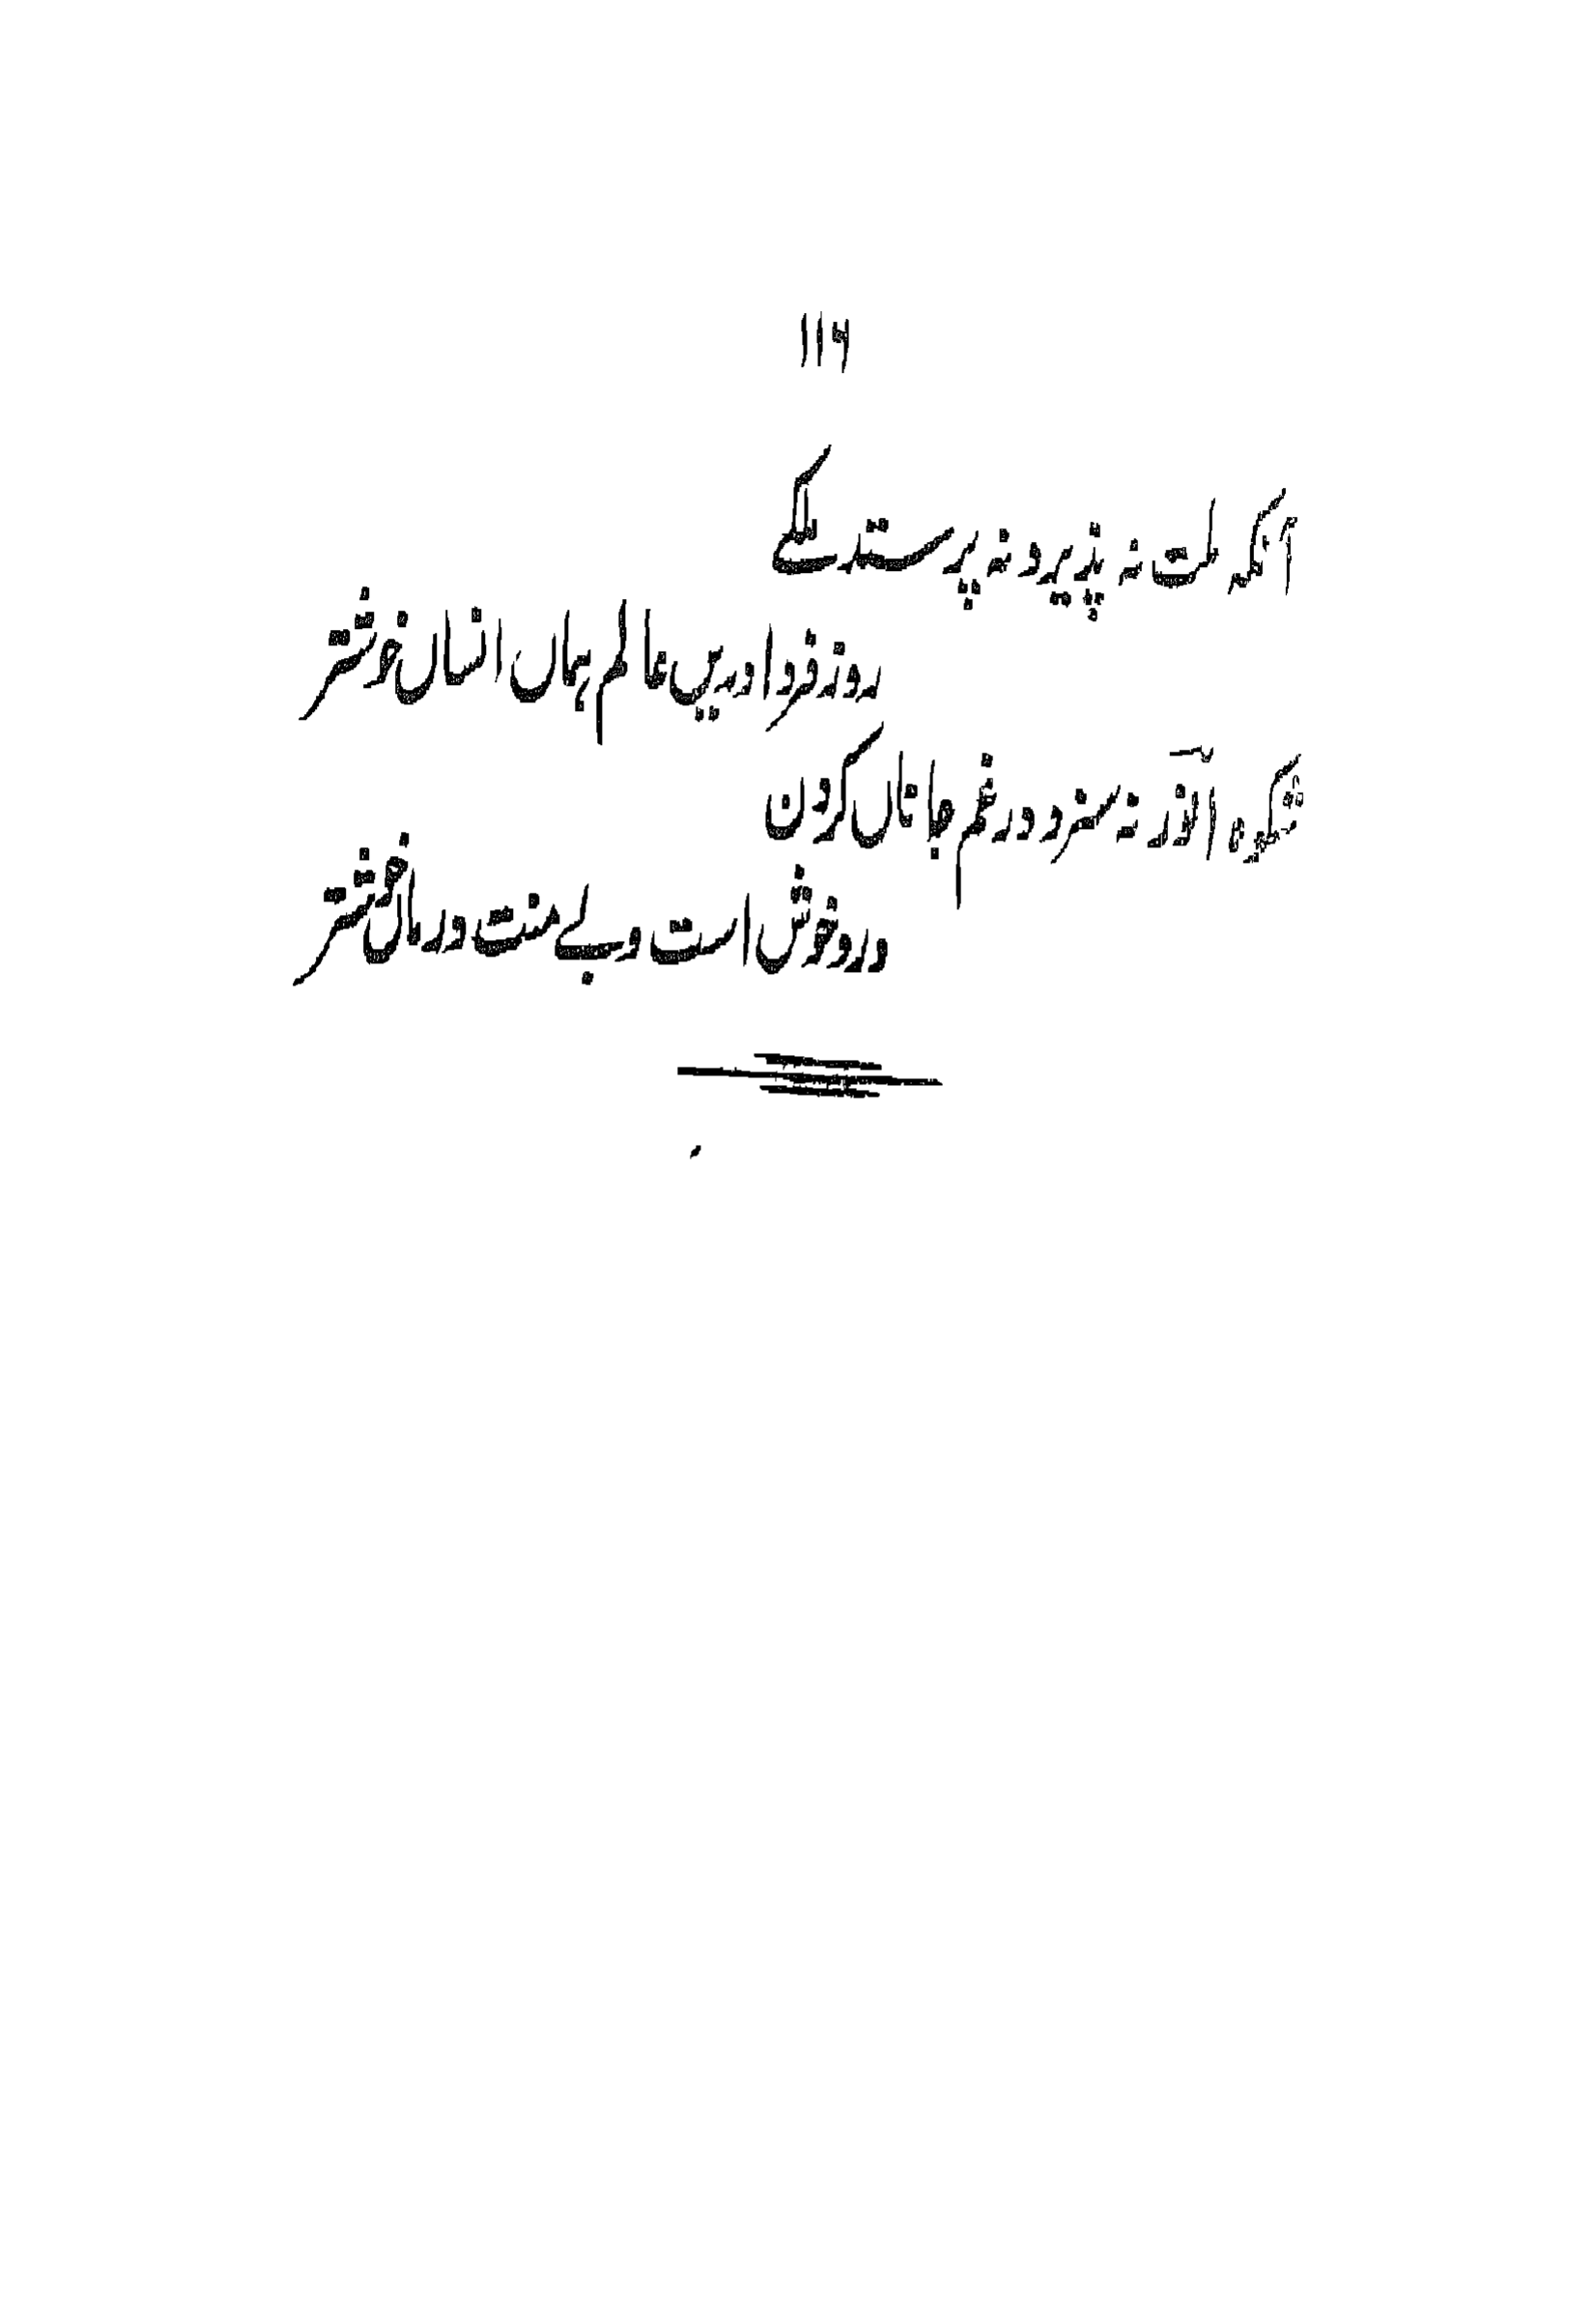 ۱۱۶
آنکہ ملت نہ پذیرد نہ پرستد ملکے
روز فردا دریں عالم ہماں انساں خوشتر
شکوہ انور نہ سزد در غم جاناں کردن
درد خوش است و بے منت درماں خوشتر